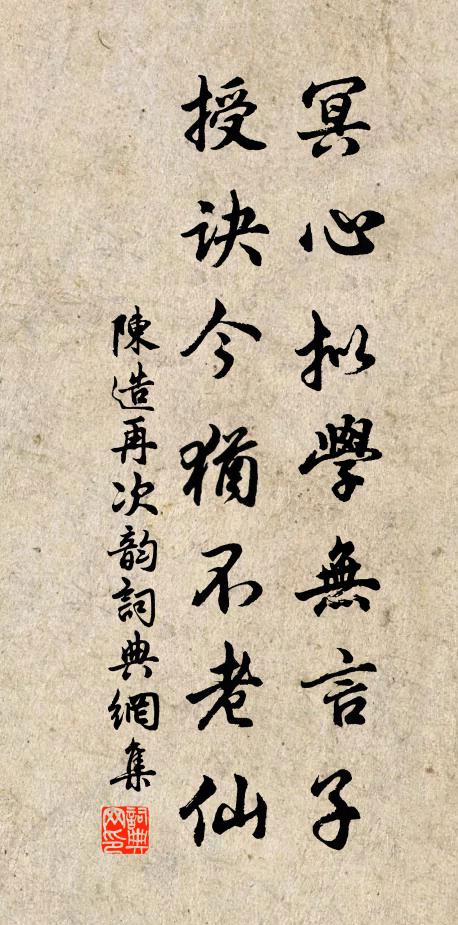 冥心拟學無言子
授訣今猶不老仙
陳造再次韵詞典網集
詞典网印